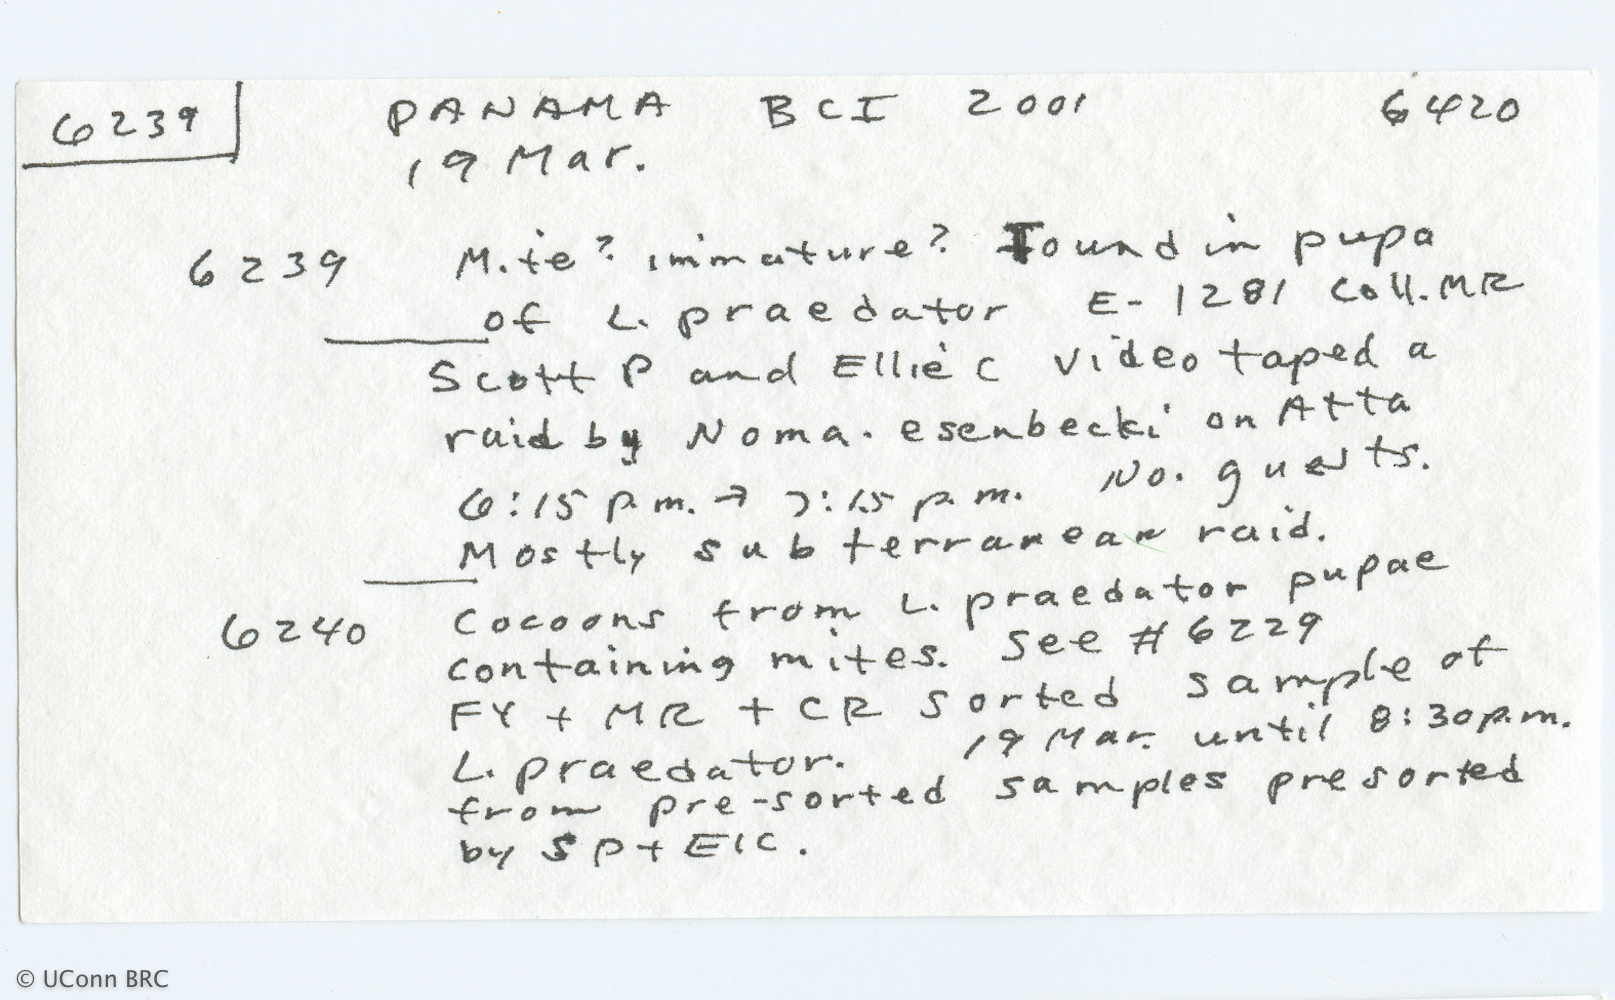 6239 PANAMA BCI 2001 6420
19 Mar.
6239 Mite? immature? Found in pupa
of L. praedator E-1281 Coll. MR
Scott P and Ellie C video taped a
raid by Noma. esenbecki on Atta
6:15 p.m. → 7:15 p.m. No. guests.
Mostly subterranean raid.
6240 Cocoons from L. praedator pupae
containing mites. See # 6229
FY + MR + CR sorted sample of
L. praedator. 19 Mar. until 8:30 p.m.
from pre-sorted samples presorted
by SP + ElC.
© UConn BRC